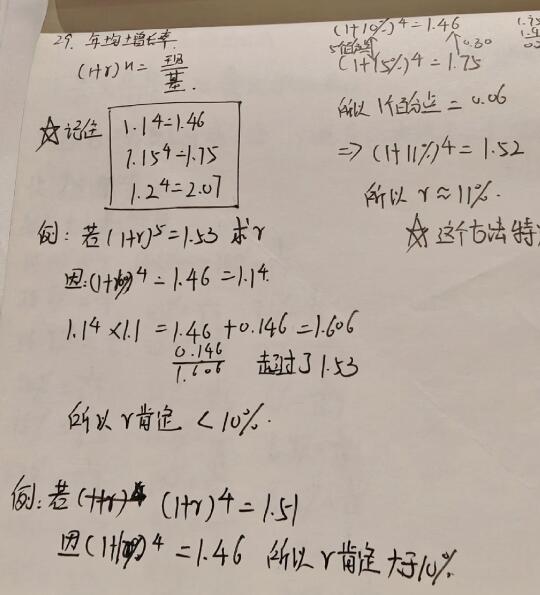 29. 年均增长率.
(1+r)ⁿ = 现/基.
☆记住
1.1⁴=1.46
1.15⁴=1.75
1.2⁴=2.07
例: 若(1+r)⁵=1.53 求r
因:(1+10%)⁴=1.46=1.1⁴.
1.1⁴×1.1 = 1.46+0.146=1.606
0.146
1.606 超过了1.53
所以r肯定 <10%.
例: 若 (1+r)⁴=1.51
因(1+10%)⁴=1.46 所以r肯定大于10%.
(1+10%)⁴=1.46
5个百分点 0.30
(1+15%)⁴=1.75
所以 1个百分点 = 0.06
⇒ (1+11%)⁴=1.52
所以 r≈11%.
☆ 这个方法特